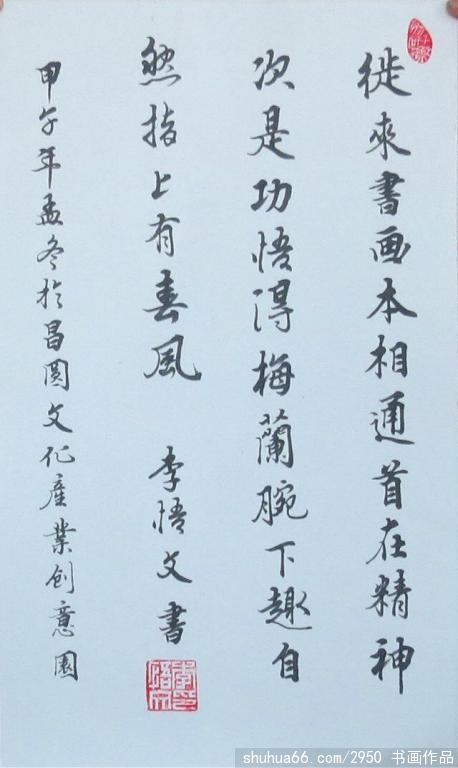 従来書画本相通首在精神
次是功悟得梅蘭腕下趣自
然指上有春風 李悟文書
甲午年孟冬於昌圆文化産業创意園
shuhua66.com/2950 书画作品